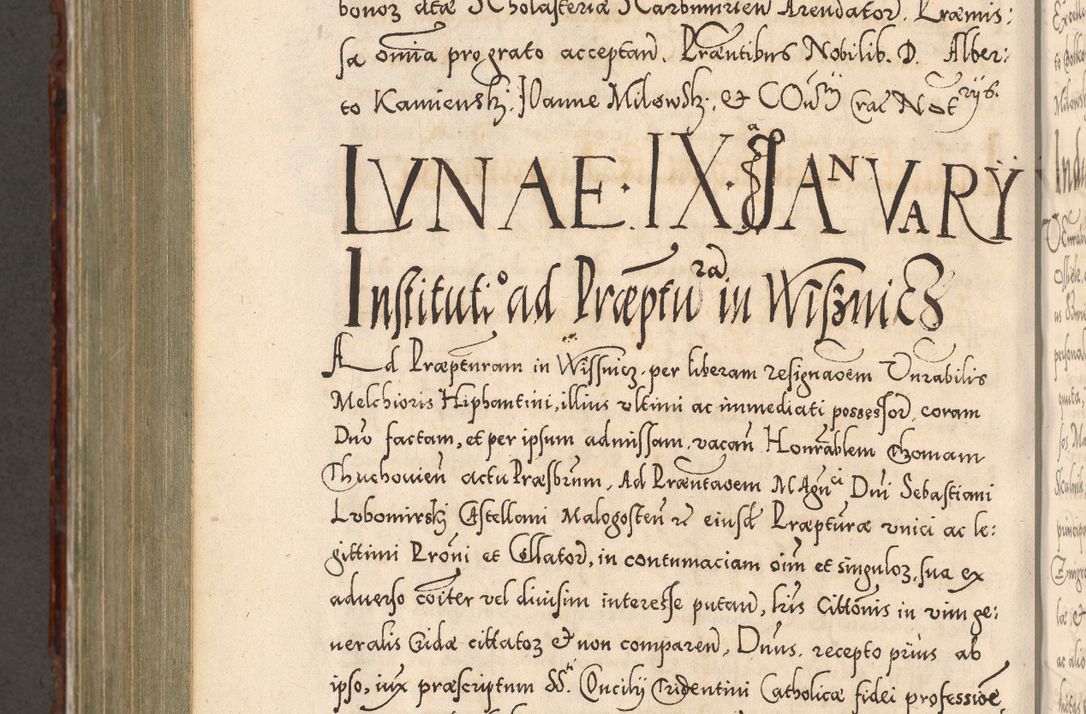 bonoꝝ dtæ Scholasteriæ Scarbimirien Arendator. Præmis:
sa omia pro grato acceptan̄. Præntibus Nobilib. D. Alber:
to Kamienski. Joanne Milowsk. et Cratorys.
LVNAE · IX · JANVARŸ
Institutio ad Præpturā in Wissnicz
Ad Præpturam in Wissnicz, per liberam resignaoem Vnrabilis
Melchioris Hiphantini, illius vltimi ac immediati possessor, coram
Dno factam, et per ipsum admissam, vacan Honrablem Thomam
Thuchouien actu Præsbrum, Ad Præntaoem Magci Dni Sebastiani
Lvbomirski Castellani Malogosten rc eiusd Præpturæ vnici ac le:
gittimi Proni et Collator, in contumaciam oim et singuloꝝ, sua ex
aduerso coiter vel diuisim interesse putan, lris Cittonis in vim ge:
neralis Cridæ cittatoꝝ et non comparen, Dnus. recepto prius ab
ipso, iux præscriptum SS. Concilij Tridentini Catholicæ fidei professioe,